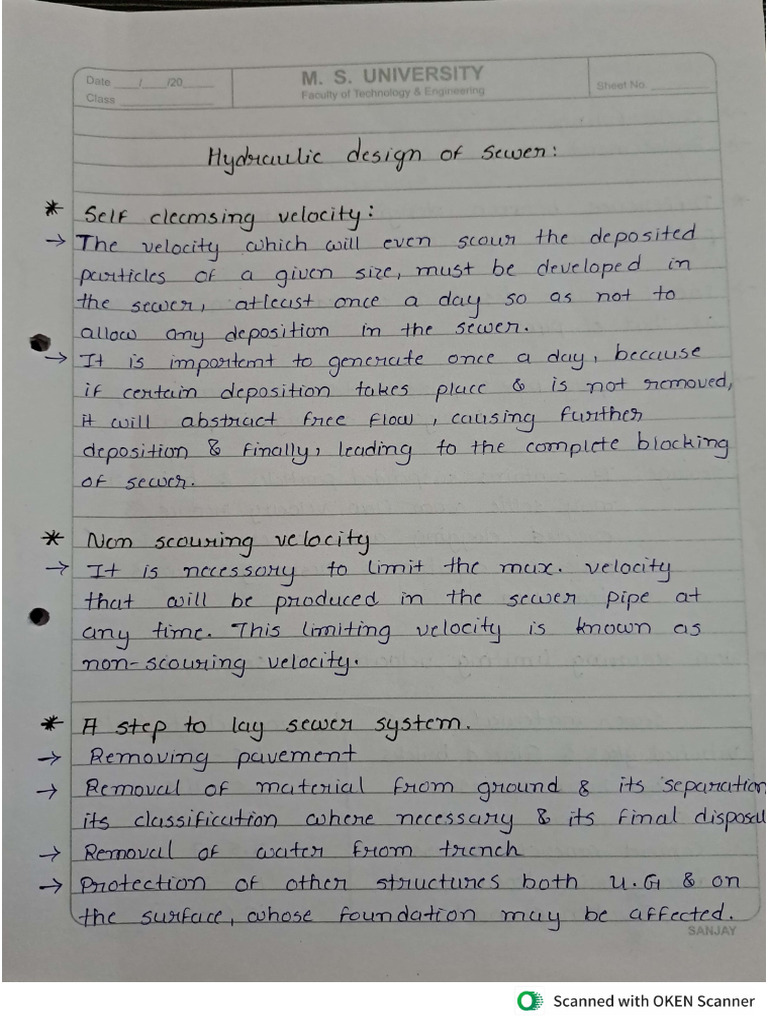 Date ___/___/20____
Class ____________
M. S. UNIVERSITY
Faculty of Technology & Engineering
Sheet No ________
Hydraulic design of sewer:
* Self cleansing velocity:
→ The velocity which will even scour the deposited
particles of a given size, must be developed in
the sewer, atleast once a day so as not to
allow any deposition in the sewer.
→ It is important to generate once a day, because
if certain deposition takes place & is not removed,
it will abstract free flow, causing further
deposition & finally, leading to the complete blocking
of sewer.
* Non scouring velocity
→ It is necessory to limit the max. velocity
that will be produced in the sewer pipe at
any time. This limiting velocity is known as
non-scouring velocity.
* A step to lay sewer system.
→ Removing pavement
→ Removal of material from ground & its separation
its classification where necessary & its final disposal
→ Removal of water from trench
→ Protection of other structures both U.G & on
the surface, whose foundation may be affected.
SANJAY
Scanned with OKEN Scanner